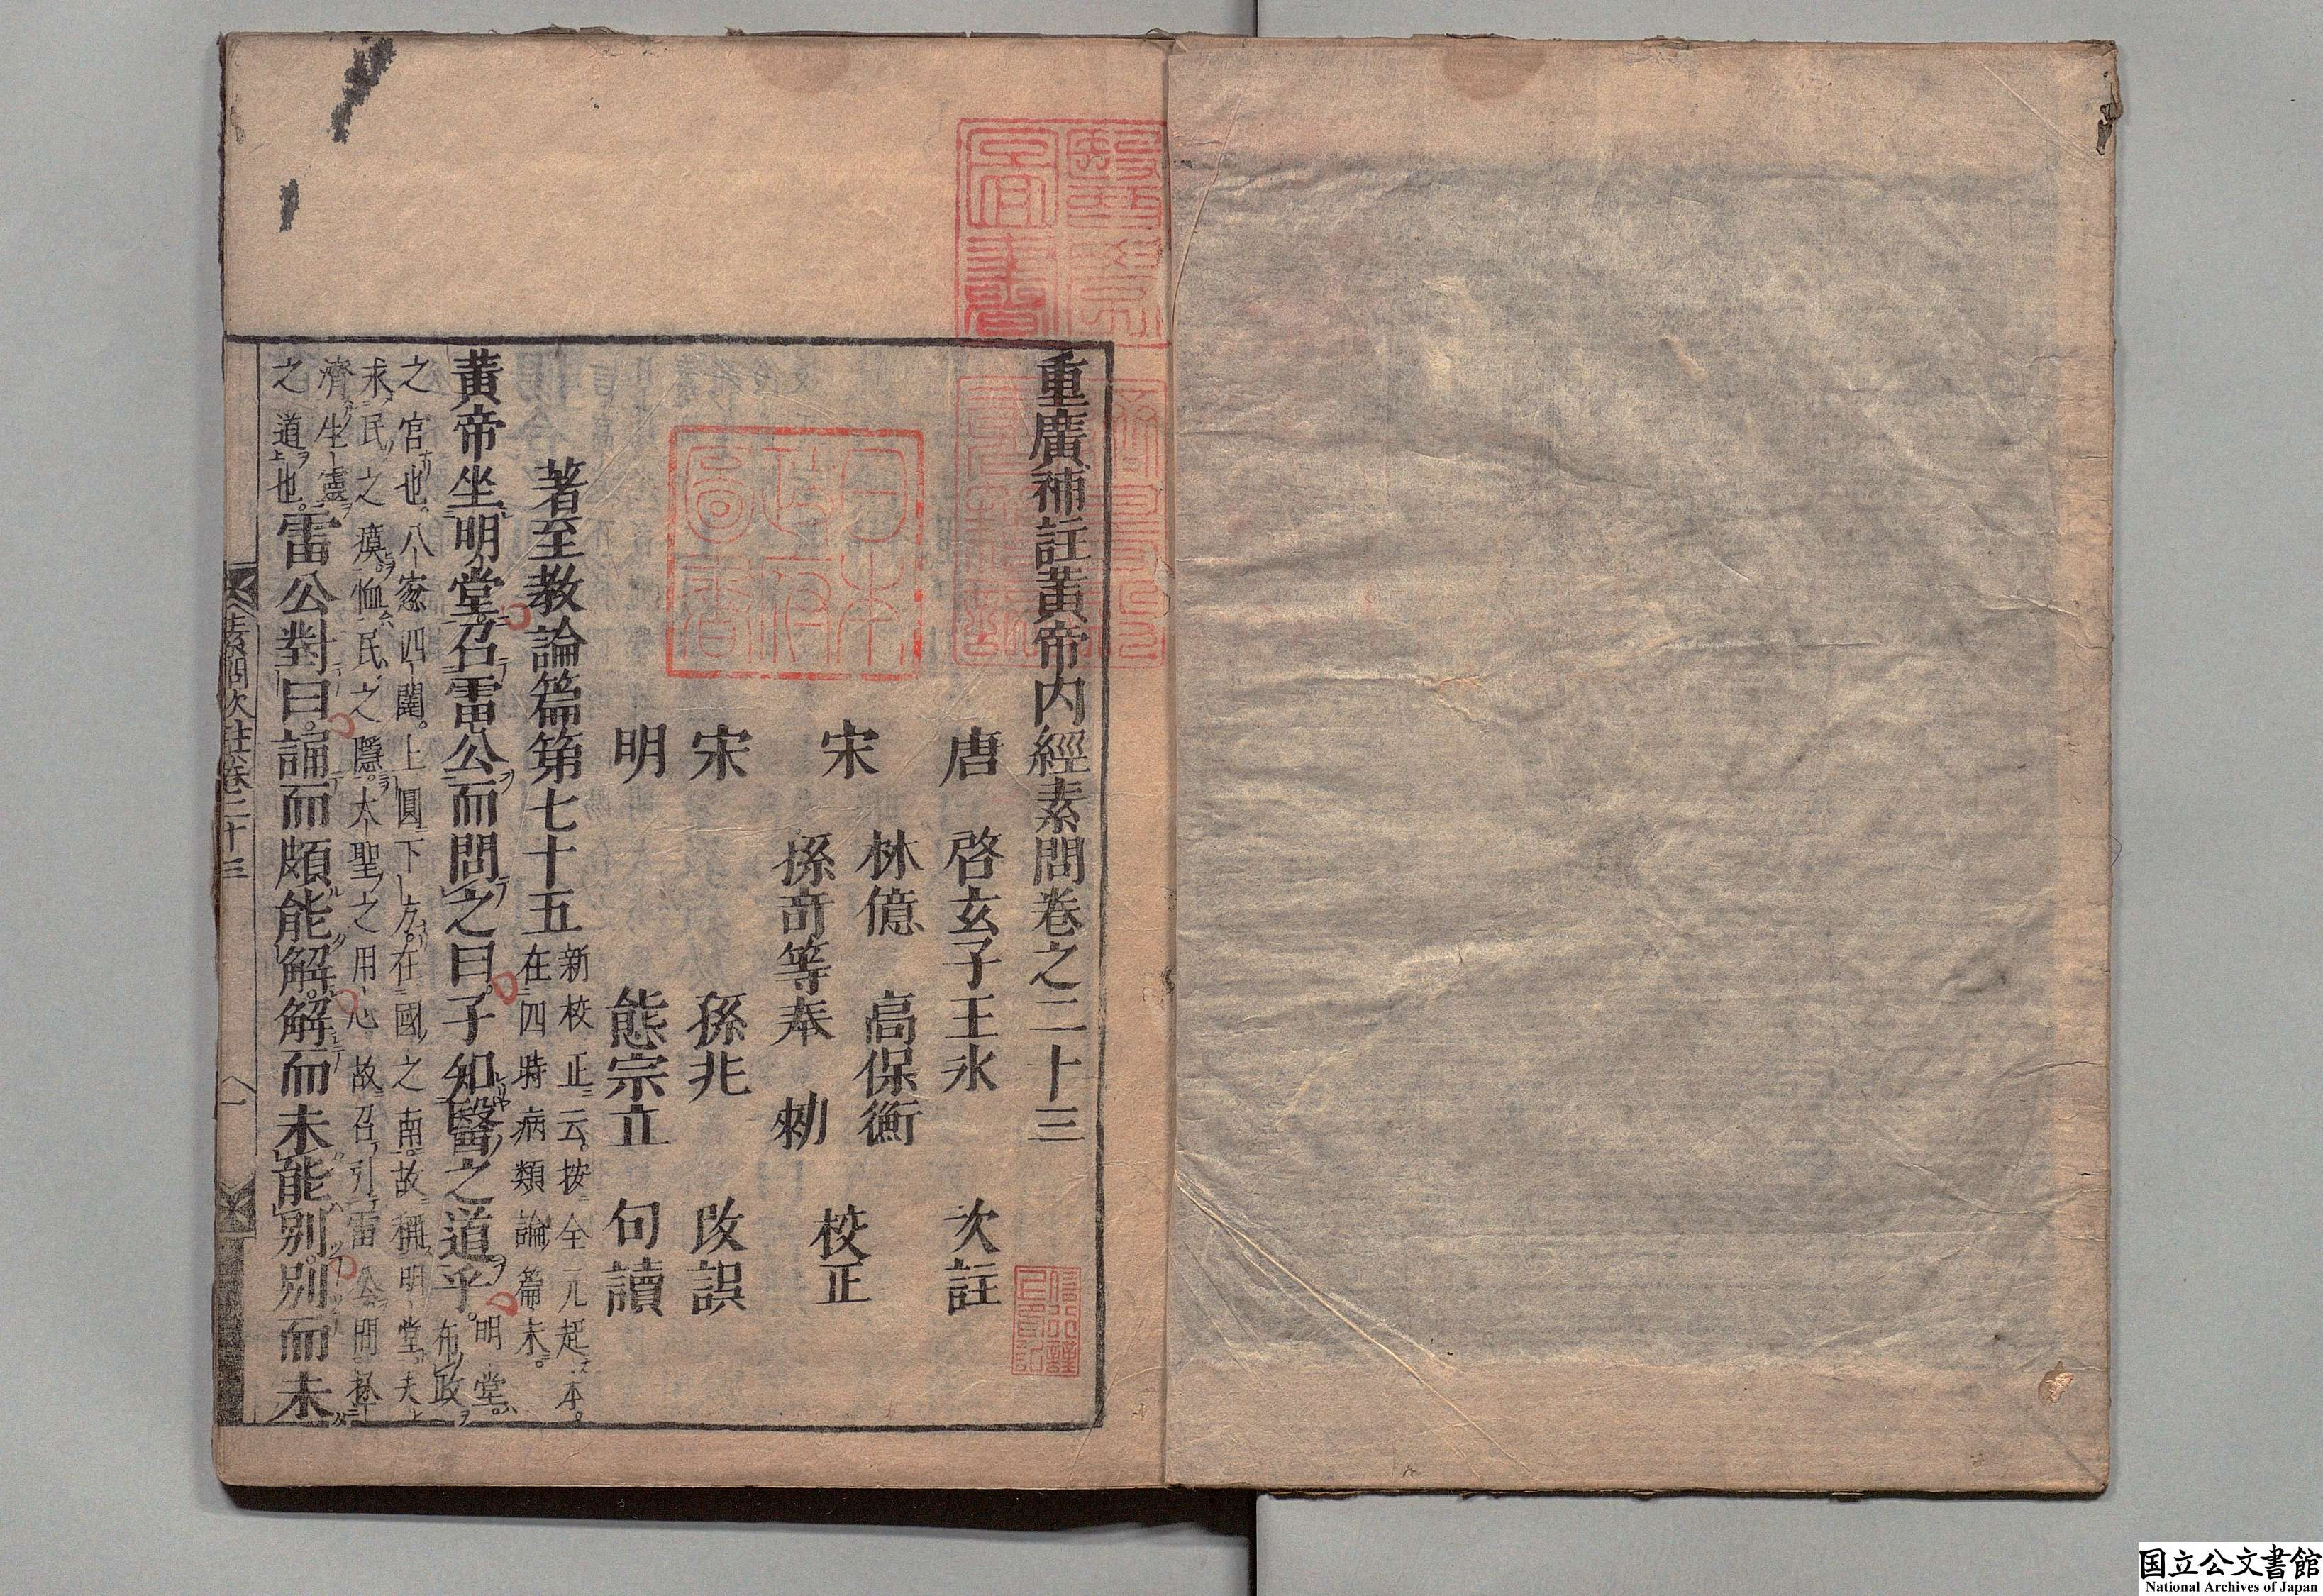 重廣補註黃帝内經素問卷之二十三
唐　啓玄子王氷　次註
宋　林億　高保衡
孫奇等奉　勑　校正
宋　孫兆　改誤
明　熊宗立　句讀
著至教論篇第七十五
新校正云。按全元起本。
在四時病類論篇末。
黃帝坐明堂。召雷公而問之曰。子知醫之道乎。
明堂。
布政
之官也。八窓四闥。上圓下方。在國之南。故稱明堂。夫
求民之瘼。恤民之隱。大聖之用心。故召引雷公。問拯
濟生靈
之道也。
雷公對曰。誦而頗能解。解而未能別。別而未
素問次註卷二十三
一
日本
政府
圖書
国立公文書館
National Archives of Japan